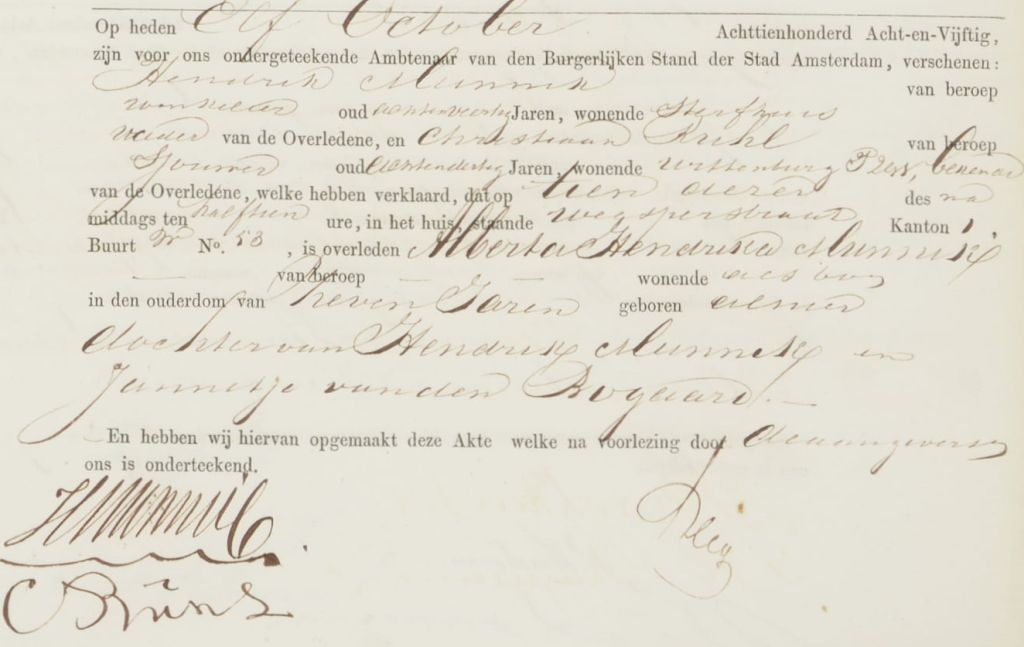 Op heden Elf October Achttienhonderd Acht-en-Vijftig,
zijn voor ons ondergeteekende Ambtenaar van den Burgerlijken Stand der Stad Amsterdam, verschenen:
Hendrik Munnik van beroep
winkelier oud achtenveertig Jaren, wonende Sterfhuis
vader van de Overledene, en Christiaan van beroep
Sjouwer oud achtendertig Jaren, wonende Wittenburg bekende
van de Overledene, welke hebben verklaard, dat op tien dezer des na
middags ten halftien ure, in het huis, staande Wegsperstraat Kanton 1,
Buurt W No. 53, is overleden Alberta Hendrika Munnik
— van beroep — wonende
in den ouderdom van Zeven Jaren geboren alhier
dochter van Hendrik Munnik en
Jannetje van den Bogaard.—
En hebben wij hiervan opgemaakt deze Akte welke na voorlezing door de aangevers
ons is onderteekend.
H Munnik